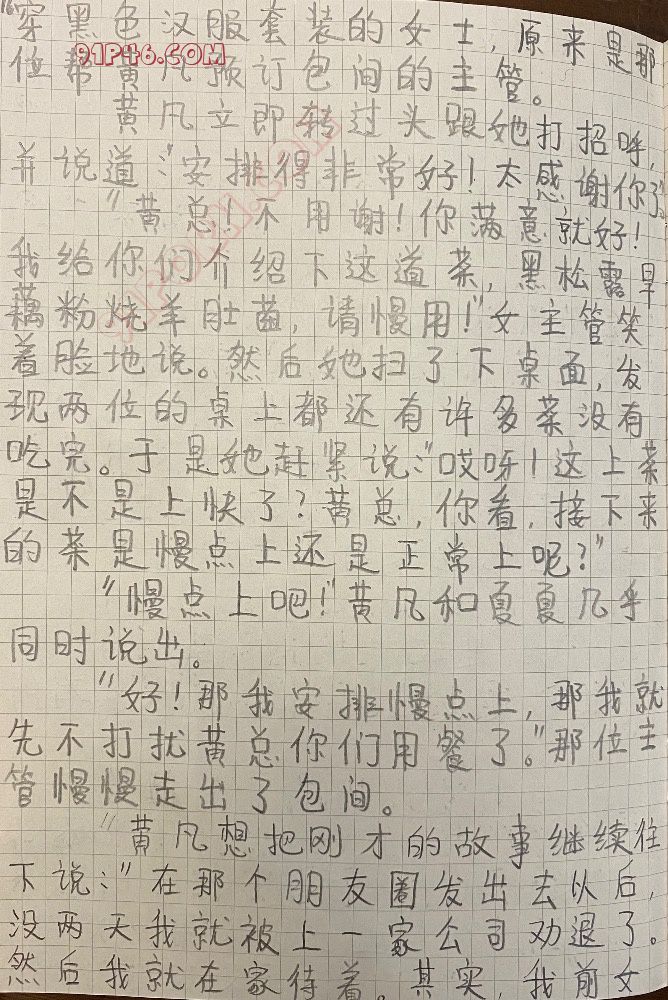 16
穿黑色汉服套装的女士,原来是那
91P46.COM
位帮黄凡预订包间的主管。
黄凡立即转过头跟她打招呼,
并说道:"安排得非常好!太感谢你了!
"黄总!不用谢!你满意就好!
我给你们介绍下这道菜,黑松露旱
藕粉烧羊肚菌,请慢用!"女主管笑
着脸地说。然后她扫了下桌面,发
现两位的桌上都还有许多菜没有
吃完。于是她赶紧说:"哎呀!这上菜
是不是上快了?黄总,你看,接下来
的菜是慢点上还是正常上呢?"
"慢点上吧!"黄凡和夏夏几乎
同时说出。
"好!那我安排慢点上,那我就
先不打扰黄总你们用餐了。"那位主
管慢慢走出了包间。
"黄凡想把刚才的故事继续往
下说:"在那个朋友圈发出去以后,
没两天我就被上一家公司劝退了。
然后我就在家待着。其实,我前女